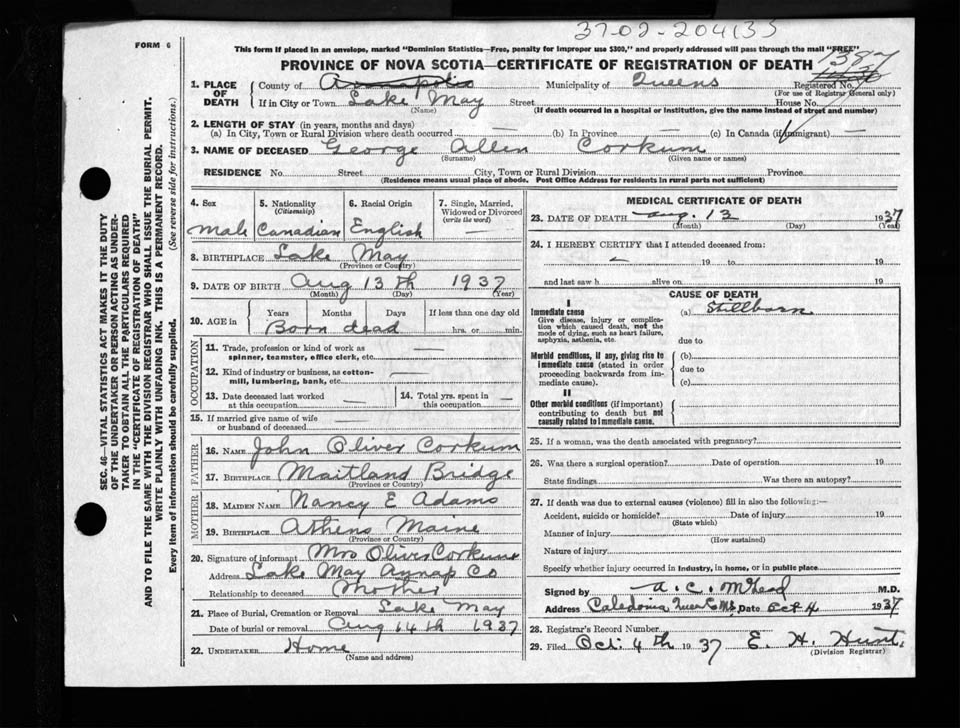 37-02-204135
FORM 6
This form if placed in an envelope, marked "Dominion Statistics—Free, penalty for improper use $300," and properly addressed will pass through the mail "FREE"
PROVINCE OF NOVA SCOTIA—CERTIFICATE OF REGISTRATION OF DEATH
1387
1. PLACE OF DEATH
County of Annapolis Municipality of Queens Registered No.
(For use of Registrar General only)
If in City or Town Lake May Street House No.
(Name) (If death occurred in a hospital or institution, give the name instead of street and number)
2. LENGTH OF STAY (in years, months and days)
(a) In City, Town or Rural Division where death occurred — (b) In Province — (c) In Canada (if immigrant) —
3. NAME OF DECEASED George Allen Corkum
(Surname) (Given name or names)
RESIDENCE No. Street City, Town or Rural Division Province
(Residence means usual place of abode. Post Office Address for residents in rural parts not sufficient)
4. Sex 5. Nationality (Citizenship) 6. Racial Origin 7. Single, Married, Widowed or Divorced (write the word)
Male Canadian English —
8. BIRTHPLACE Lake May
(Province or Country)
9. DATE OF BIRTH Aug 13th 1937
(Month) (Day) (Year)
10. AGE in Years Months Days If less than one day old
Born dead hrs. or min.
OCCUPATION
11. Trade, profession or kind of work as spinner, teamster, office clerk, etc. —
12. Kind of industry or business, as cotton-mill, lumbering, bank, etc. —
13. Date deceased last worked at this occupation — 14. Total yrs. spent in this occupation —
15. If married give name of wife or husband of deceased —
FATHER
16. NAME John Oliver Corkum
17. BIRTHPLACE Maitland Bridge
(Province or Country)
MOTHER
18. MAIDEN NAME Nancy E Adams
19. BIRTHPLACE Athens Maine
(Province or Country)
20. Signature of informant Mrs Oliver Corkum
Address Lake May Annap Co
Relationship to deceased Mother
21. Place of Burial, Cremation or Removal Lake May
Date of burial or removal Aug 14th 1937
22. UNDERTAKER Home
(Name and address)
MEDICAL CERTIFICATE OF DEATH
23. DATE OF DEATH Aug. 13 1937
(Month) (Day) (Year)
24. I HEREBY CERTIFY that I attended deceased from:
— 19 to 19
and last saw h alive on 19
CAUSE OF DEATH
I
Immediate cause (a) Stillborn
Give disease, injury or complication which caused death, not the mode of dying, such as heart failure, asphyxia, asthenia, etc.
due to
Morbid conditions, if any, giving rise to immediate cause (stated in order proceeding backwards from immediate cause).
(b)
due to
(c)
II
Other morbid conditions (if important) contributing to death but not causally related to immediate cause.
25. If a woman, was the death associated with pregnancy?
26. Was there a surgical operation? Date of operation 19
State findings Was there an autopsy?
27. If death was due to external causes (violence) fill in also the following:—
Accident, suicide or homicide? Date of injury 19
(State which)
Manner of injury
(How sustained)
Nature of injury
Specify whether injury occurred in industry, in home, or in public place
Signed by A. C. McLeod M.D.
Address Caledonia Date Oct 4 1937
28. Registrar's Record Number
29. Filed Oct. 4th 1937 E. H. Hunt.
(Division Registrar)
SEC. 46—VITAL STATISTICS ACT MAKES IT THE DUTY
OF THE UNDERTAKER OR PERSON ACTING AS UNDER-
TAKER TO OBTAIN ALL THE PARTICULARS REQUIRED
IN THE "CERTIFICATE OF REGISTRATION OF DEATH"
AND TO FILE THE SAME WITH THE DIVISION REGISTRAR WHO SHALL ISSUE THE BURIAL PERMIT.
WRITE PLAINLY WITH UNFADING INK. THIS IS A PERMANENT RECORD.
Every item of information should be carefully supplied. (See reverse side for instructions.)